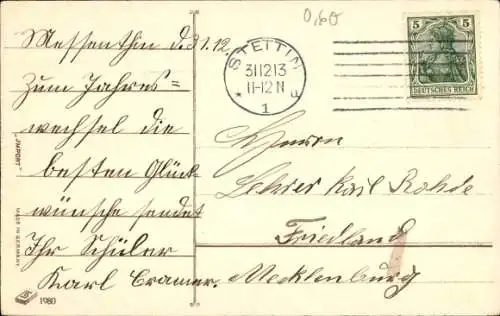 0,60
Messenthin d. 31.12.
Zum Jahres=
wechsel die
besten Glück-
wünsche sendet
Ihr Schüler
Karl Cramer.
STETTIN
31 12 13
11-12 N
* 1
5 5
DEUTSCHES REICH
Herrn
Lehrer Karl Rohde
Friedland
Mecklenburg
"IMPORT"
MADE IN GERMANY
1980